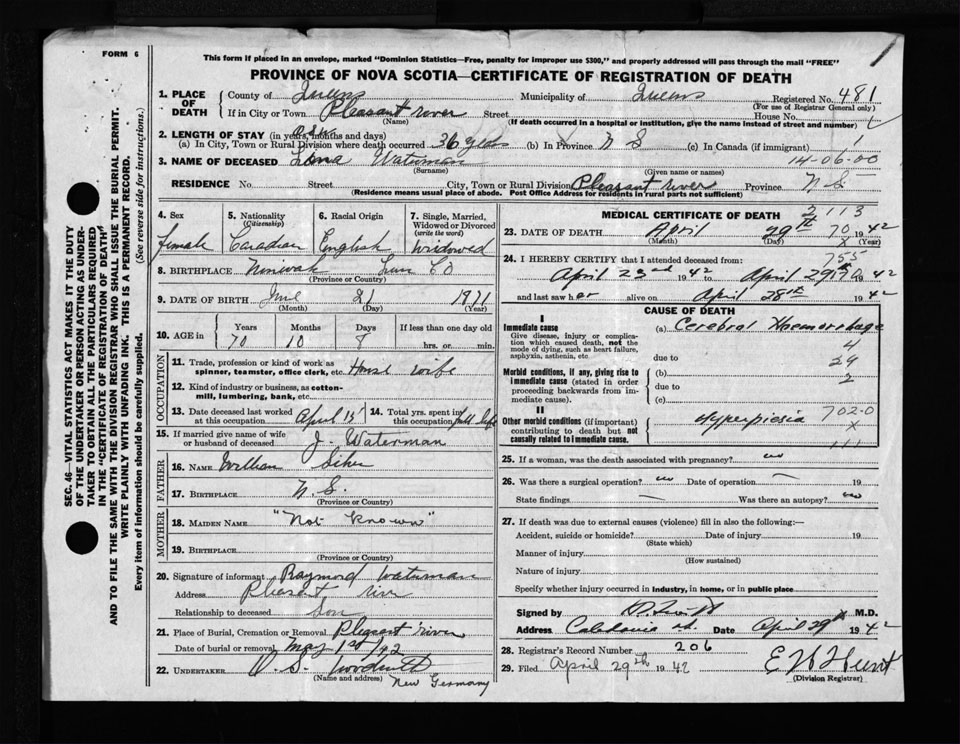 FORM 6
This form if placed in an envelope, marked "Dominion Statistics—Free, penalty for improper use $300," and properly addressed will pass through the mail "FREE"
PROVINCE OF NOVA SCOTIA—CERTIFICATE OF REGISTRATION OF DEATH
SEC. 46—VITAL STATISTICS ACT MAKES IT THE DUTY
OF THE UNDERTAKER OR PERSON ACTING AS UNDER-
TAKER TO OBTAIN ALL THE PARTICULARS REQUIRED
IN THE "CERTIFICATE OF REGISTRATION OF DEATH"
AND TO FILE THE SAME WITH THE DIVISION REGISTRAR WHO SHALL ISSUE THE BURIAL PERMIT.
WRITE PLAINLY WITH UNFADING INK. THIS IS A PERMANENT RECORD.
Every item of information should be carefully supplied. (See reverse side for instructions.)
1. PLACE OF DEATH County of Queens Municipality of Queens Registered No. 481
(For use of Registrar General only)
If in City or Town Pleasant river Street House No.
(Name) (If death occurred in a hospital or institution, give the name instead of street and number)
2. LENGTH OF STAY (in years, months and days)
(a) In City, Town or Rural Division where death occurred 36 (b) In Province N S (c) In Canada (if immigrant)
3. NAME OF DECEASED Waterman 14-06-00
(Surname) (Given name or names)
RESIDENCE No. Street City, Town or Rural Division Pleasant river Province N.S.
(Residence means usual place of abode. Post Office Address for residents in rural parts not sufficient)
4. Sex female
5. Nationality (Citizenship) Canadian
6. Racial Origin English
7. Single, Married, Widowed or Divorced (write the word) widowed
8. BIRTHPLACE Lun CO
(Province or Country)
9. DATE OF BIRTH June 21 1871
(Month) (Day) (Year)
10. AGE in Years 70 Months 10 Days 8 If less than one day old hrs. or min.
OCCUPATION
11. Trade, profession or kind of work as spinner, teamster, office clerk, etc. House wife
12. Kind of industry or business, as cotton-mill, lumbering, bank, etc.
13. Date deceased last worked at this occupation April 15
14. Total yrs. spent in this occupation full life
15. If married give name of wife or husband of deceased J. Waterman
FATHER
16. NAME William
17. BIRTHPLACE N.S.
(Province or Country)
MOTHER
18. MAIDEN NAME "Not known"
19. BIRTHPLACE
(Province or Country)
20. Signature of informant Raymond Waterman
Address Pleasant river
Relationship to deceased Son
21. Place of Burial, Cremation or Removal Pleasant river
Date of burial or removal May 1st/42
22. UNDERTAKER
(Name and address) New Germany
MEDICAL CERTIFICATE OF DEATH
2113
23. DATE OF DEATH April 29th 70 1942
(Month) (Day) x (Year)
24. I HEREBY CERTIFY that I attended deceased from: 755
April 23rd 1942 to April 29th 1942
and last saw her alive on April 28th 1942
CAUSE OF DEATH
I
Immediate cause
Give disease, injury or complication which caused death, not the mode of dying, such as heart failure, asphyxia, asthenia, etc.
(a) Cerebral Haemorrhage
4
due to 29
Morbid conditions, if any, giving rise to immediate cause (stated in order proceeding backwards from immediate cause).
(b) 2
due to
(c)
II
Other morbid conditions (if important) contributing to death but not causally related to immediate cause.
Hyperpiesia 702-0
x
111
25. If a woman, was the death associated with pregnancy? no
26. Was there a surgical operation? no Date of operation 19
State findings Was there an autopsy? no
27. If death was due to external causes (violence) fill in also the following:—
Accident, suicide or homicide? Date of injury 19
(State which)
Manner of injury
(How sustained)
Nature of injury
Specify whether injury occurred in industry, in home, or in public place
Signed by M.D.
Address Caledonia Date April 29th 1942
28. Registrar's Record Number 206
29. Filed April 29th 1942 E W Hunt
(Division Registrar)